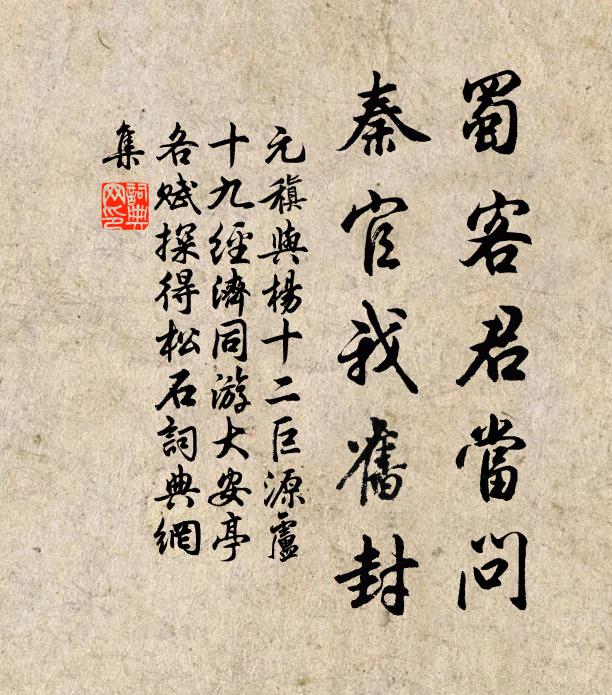 蜀客君當問
秦官我舊封
元稹與楊十二巨源盧
十九經濟同游大安亭
各賦探得松石詞典網
集
詞典網印